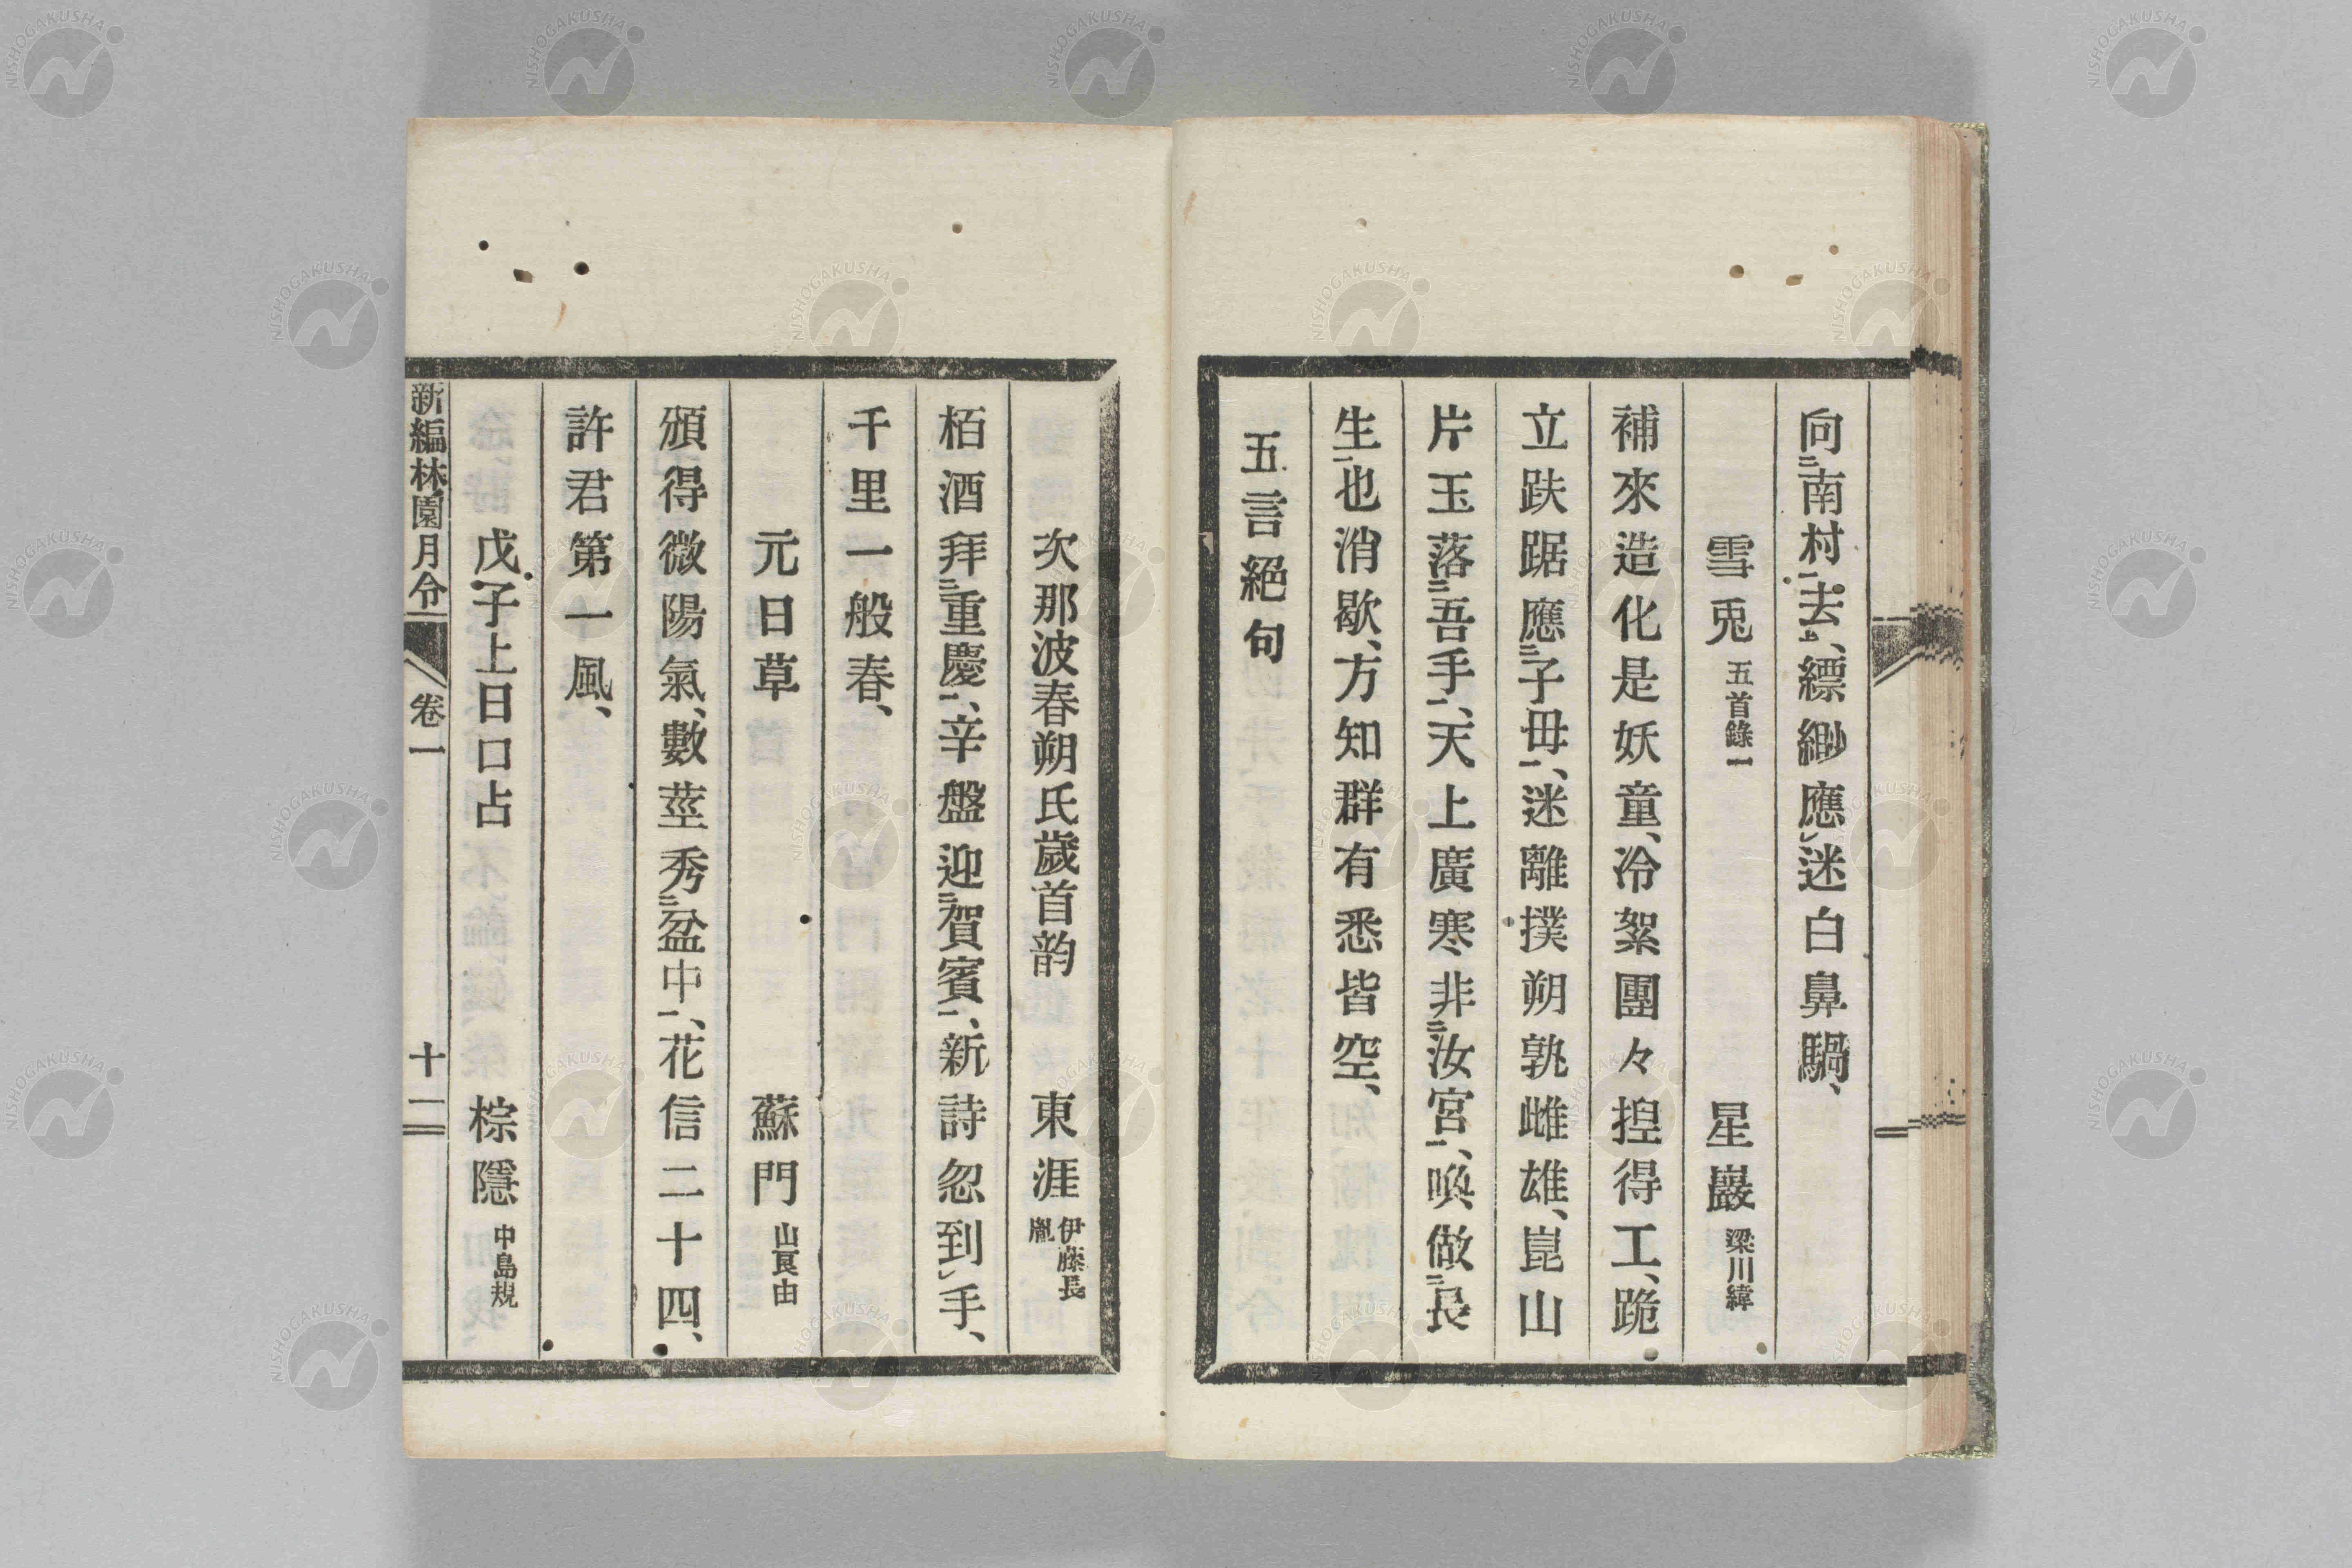 向南村去、縹緲應迷白鼻騧、
雪兎 五首錄一 星巖 梁川緯
補來造化是妖童、冷絮團々揑得工、跪
立趺踞應子母、迷離撲朔孰雌雄、崑山
片玉落吾手、天上廣寒非汝宮、喚做長
生也消歇、方知群有悉皆空、
五言絕句
次那波春朔氏歲首韵 東涯 伊藤長胤
栢酒拜重慶、辛盤迎賀賓、新詩忽到手、
千里一般春、
元日草 蘇門 山良由
頒得微陽氣、數莖秀盆中、花信二十四、
許君第一風、
戊子上日口占 棕隱 中島規
新編林園月令 卷一 十二
NISHOGAKUSHA